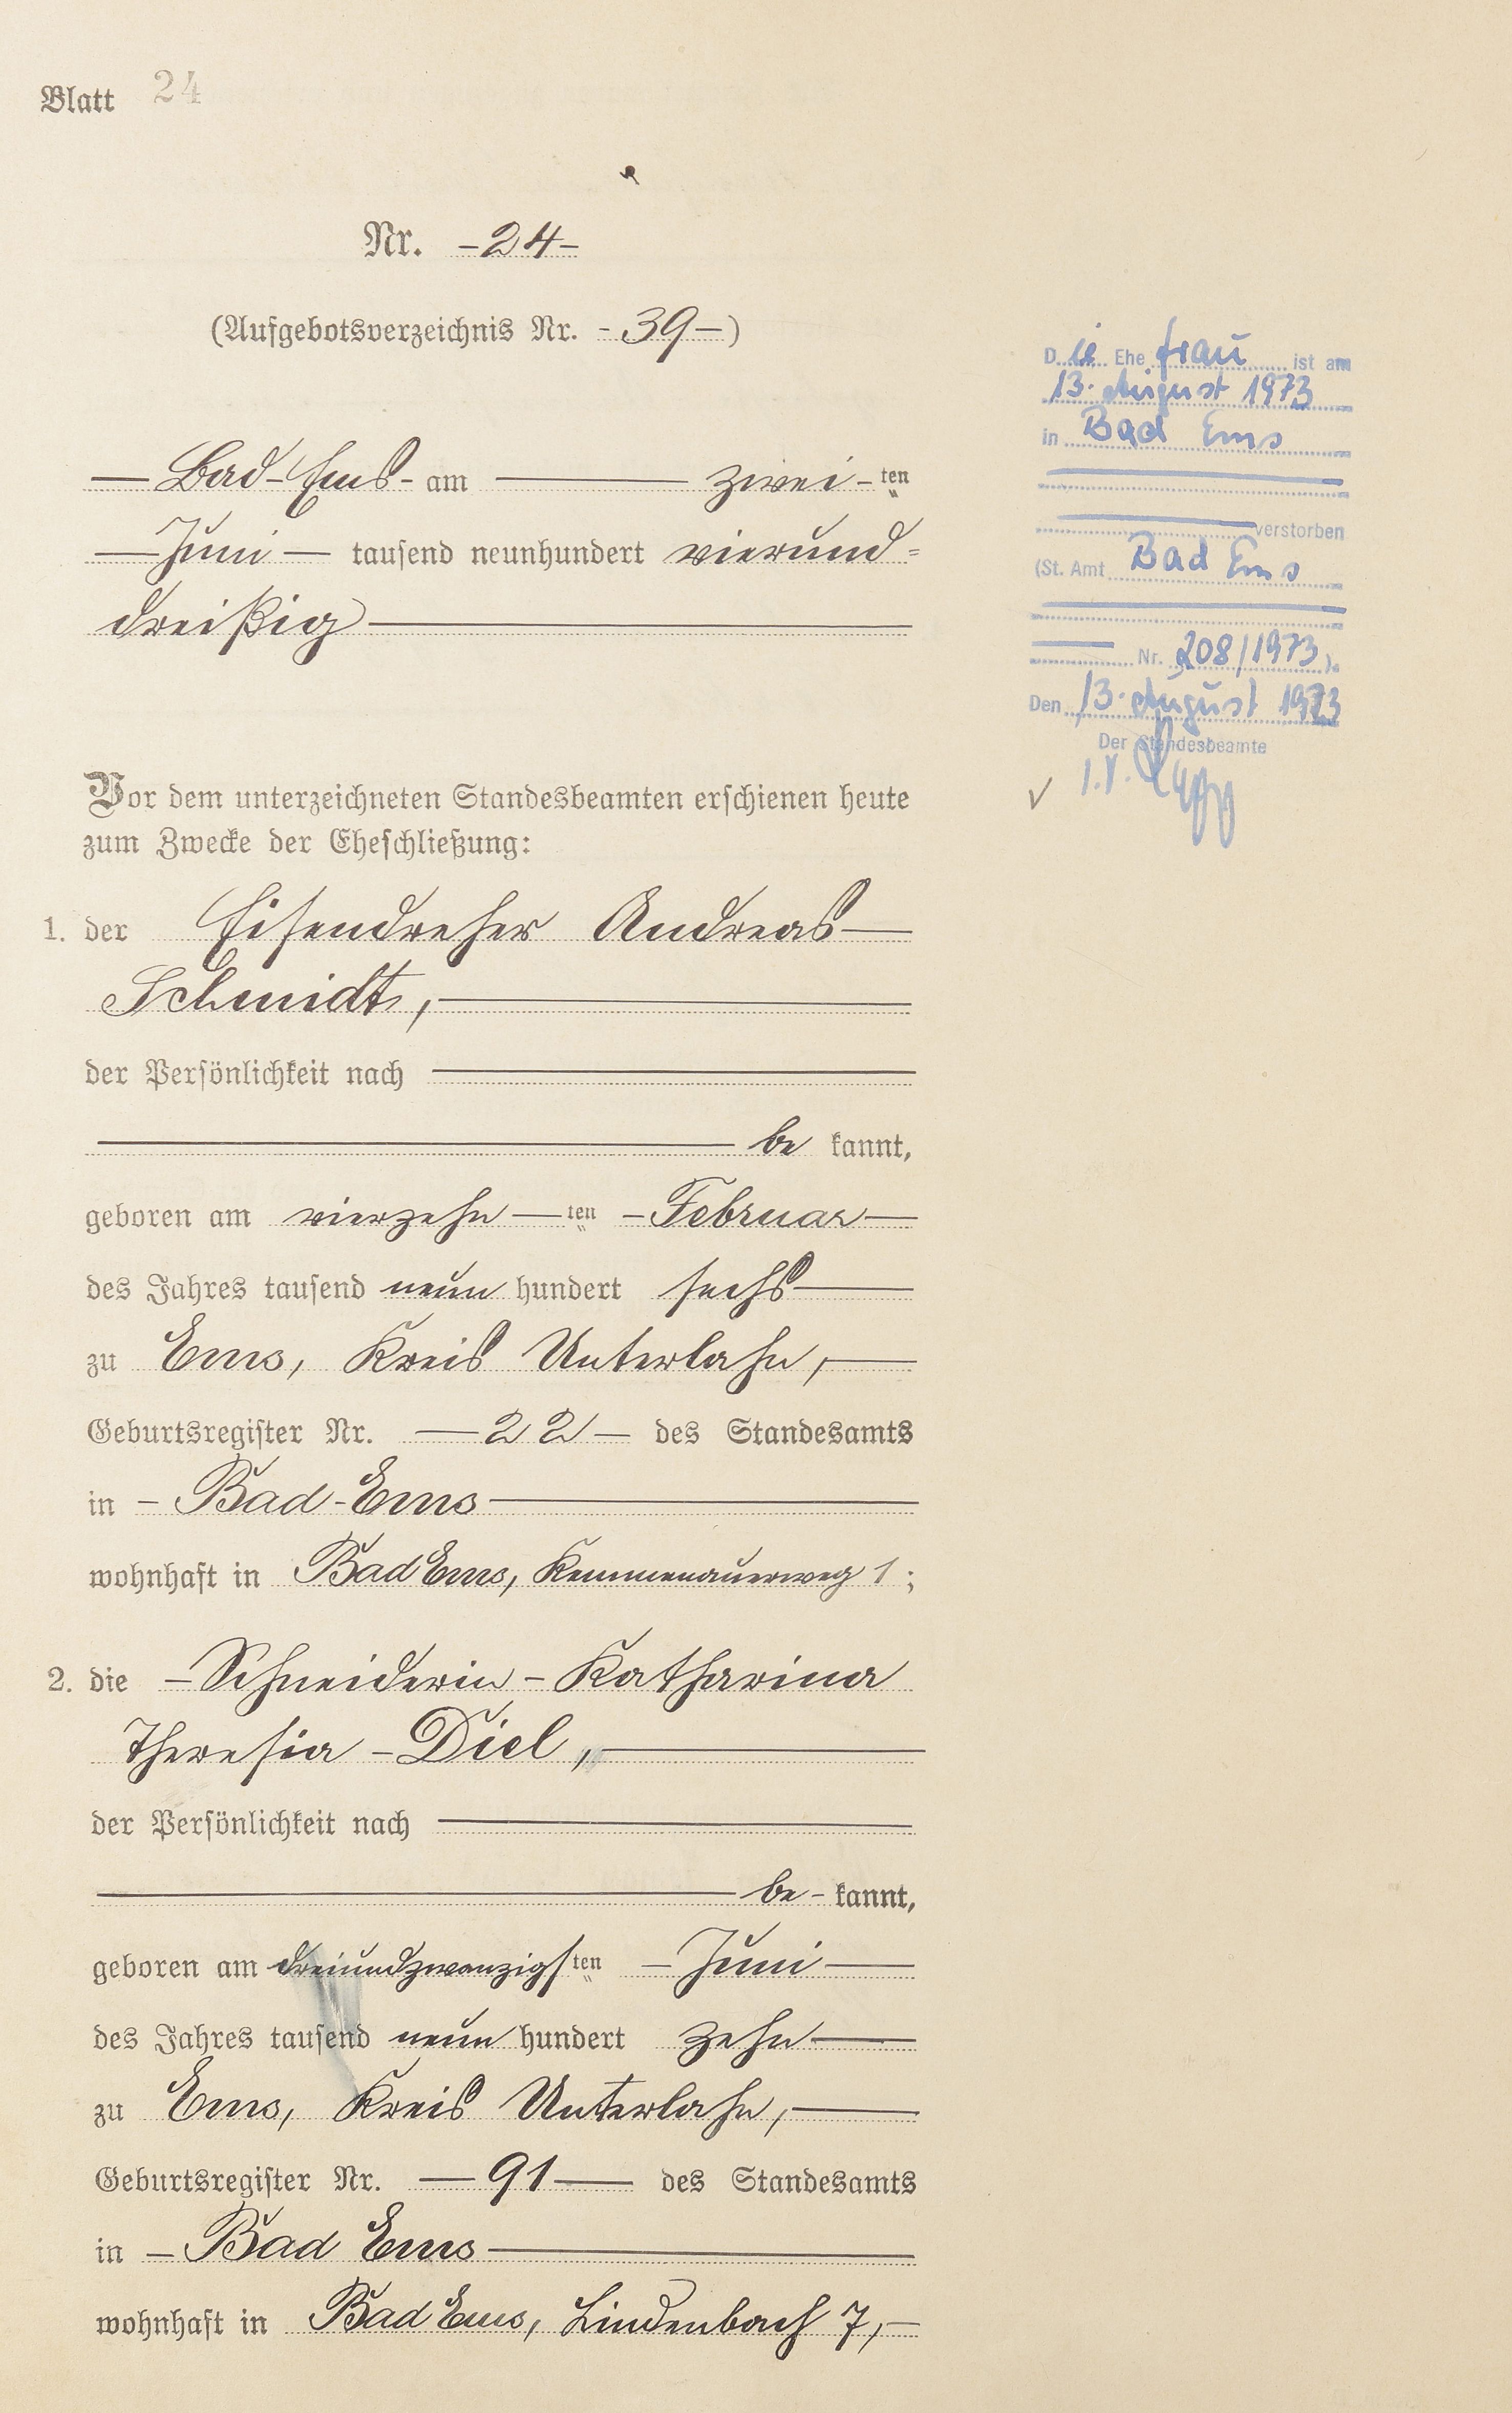 Blatt 24
Nr. -24-
(Aufgebotsverzeichnis Nr. -39-)
Bad-Ems- am zwei-ten
Juni tausend neunhundert vierund=
dreißig
Vor dem unterzeichneten Standesbeamten erschienen heute
zum Zwecke der Eheschließung:
1. der Eisendreher Andreas
Schmidt,
der Persönlichkeit nach
be kannt,
geboren am vierzehn ten Februar
des Jahres tausend neun hundert sechs
zu Ems, Kreis Unterlahn,
Geburtsregister Nr. 22 des Standesamts
in Bad-Ems
wohnhaft in Bad Ems, Kemmenauerweg 1;
2. die Schneiderin Katharina
Theresia Diel,
der Persönlichkeit nach
be- kannt,
geboren am dreiundzwanzigsten Juni
des Jahres tausend neun hundert zehn
zu Ems, Kreis Unterlahn,
Geburtsregister Nr. 91 des Standesamts
in Bad Ems
wohnhaft in Bad Ems, Lindenbach 7,
Die Ehefrau ist am
13. August 1973
in Bad Ems
verstorben
(St. Amt Bad Ems
Nr. 208/1973).
Den 13. August 1973
Der Standesbeamte
I.V.